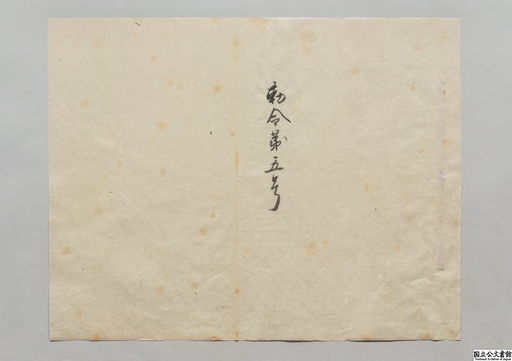 勅令第五号
国立公文書館
National Archives of Japan